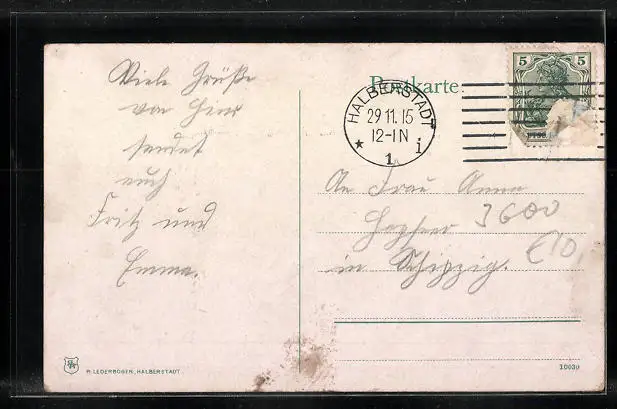 Viele Grüße
von hier
sendet
euch
Fritz und
Emma.
Postkarte
HALBERSTADT
29 11. 15
12-1N
★ 1 i
5 5
An Frau Anna
in
3600
€10,
R. LEDERBOGEN, HALBERSTADT.
10030